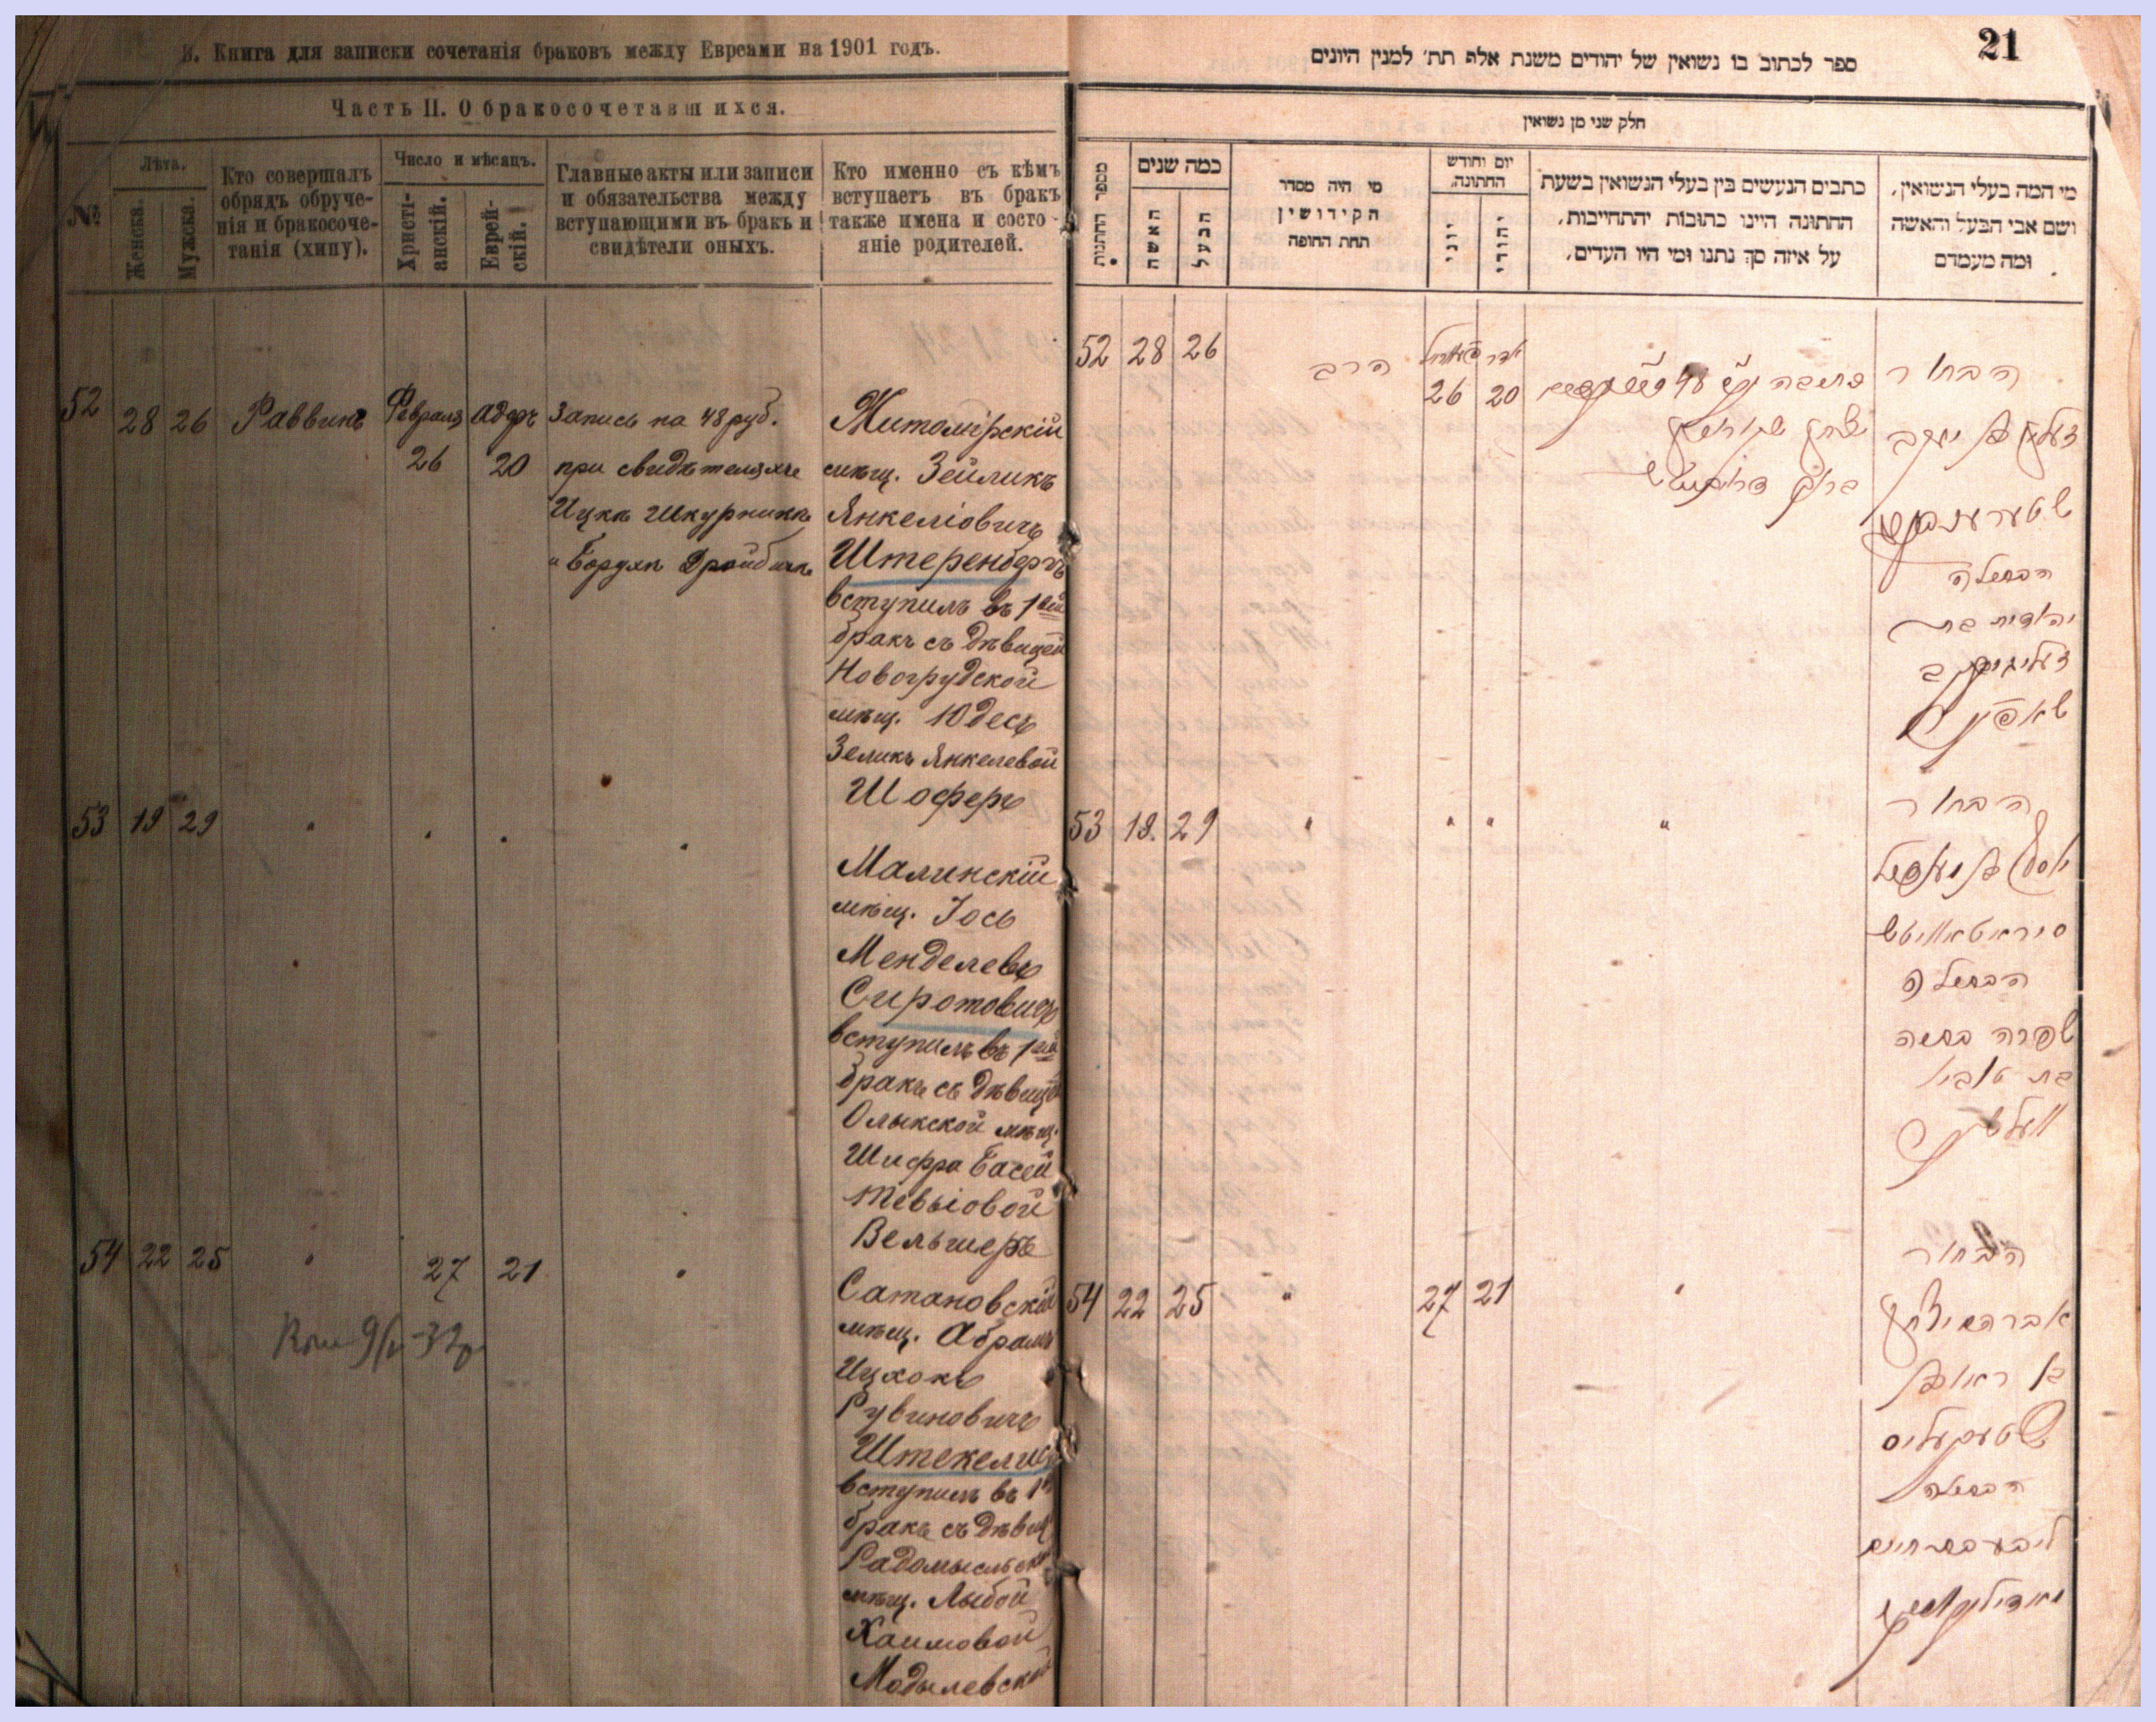 И. Книга для записки сочетанія браковъ между Евреами на 1901 годъ.
Часть II. О бракосочетавшихся.
№
Лѣта.
Женска.
Мужска.
Кто совершалъ
обрядъ обруче-
нія и бракосоче-
танія (хипу).
Число и мѣсяцъ.
Христі-
анскій.
Еврей-
скій.
Главные акты или записи
и обязательства между
вступающими въ бракъ и
свидѣтели оныхъ.
Кто именно съ кѣмъ
вступаетъ въ бракъ
также имена и состо-
яніе родителей.
52 28 26 Раввинъ Февраля 26 адеръ 20
Запись на 48 руб.
при свидѣтеляхъ
Ицка Шкурника
и Борухъ
Житомірскій
мѣщ. Зейликъ
Янкеліовичъ
Штеренбергъ
вступилъ въ 1вый
бракъ съ дѣвицей
Новогрудской
мѣщ. Юдесъ
Зеликъ Янкелевой
Шоферъ
53 19 29 " " " "
Малинскій
мѣщ. Іось
Менделевъ
Сиротовичъ
вступилъ въ 1вый
бракъ съ дѣвицей
Олыкской мѣщ.
Шифра Басей
Тевыовой
Вельшеръ
54 22 25 " 27 21 "
Сатановскій
мѣщ. Абрамъ
Ицхокъ
Рувиновичъ
Штекелисъ
вступилъ въ 1й
бракъ съ дѣвиц
Радомысльской
мѣщ. Лыбой
Хаимовой
Модылевской
21
ספר לכתוב בו נשואין של יהודים משנת אלף תת׳ למנין היונים
חלק שני מן נשואין
מספר החתנות
כמה שנים
האשה
הבעל
מי היה מסדר
הקידושין
תחת החופה
יום וחודש
החתונה.
יוני
יהודי
כתבים הנעשים בין בעלי הנשואין בשעת
החתונה היינו כתובות והתחייבות,
על איזה סך נתנו ומי היו העדים,
מי המה בעלי הנשואין,
ושם אבי הבעל והאשה
ומה מעמדם
52 28 26 הרב 26 אדר 20
הבחור
זעליק בן יעקב
שטערענבערג
הבתולה
יהודית בת
זעליג יעקב
שאפער
53 19 29 " " " "
הבחור
יוסף בן מענדיל
סיראטאוויטש
הבתולה
שפרה בתיה
בת טוביא
וועלשער
54 22 25 " 27 21 "
הבחור
אברהם יצחק
בן ראובן
שטעקעליס
הבתולה
ליבע בת חיים